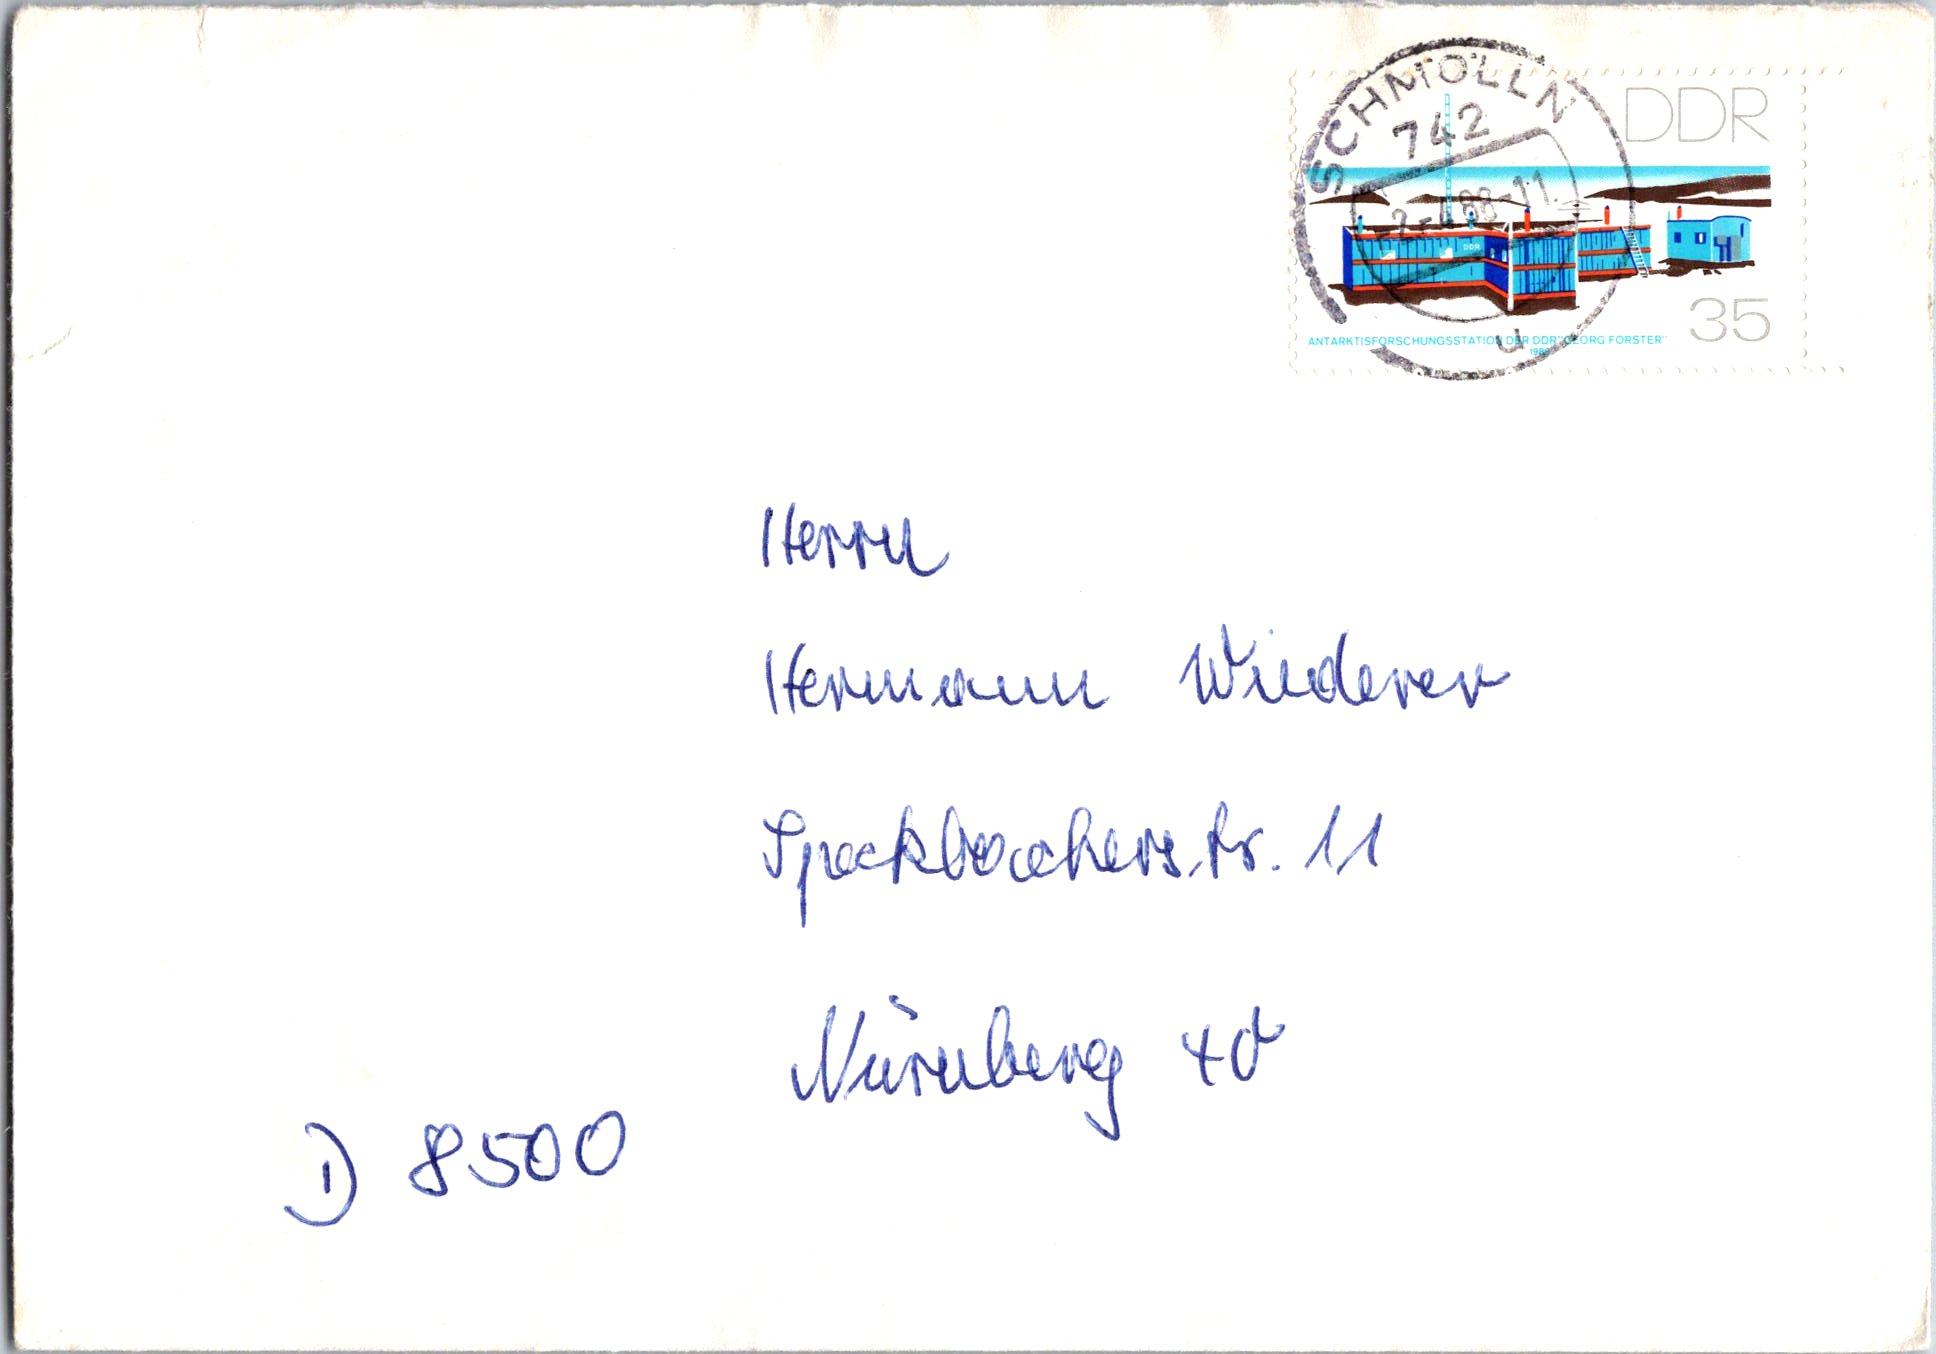 SCHMÖLLN
742
-2-4.88-11
u
DDR
DDR
35
ANTARKTISFORSCHUNGSSTATION DER DDR "GEORG FORSTER"
1988
Herrn
Hermann Wiederer
Speckbacherstr. 11
Nürnberg 40
D 8500